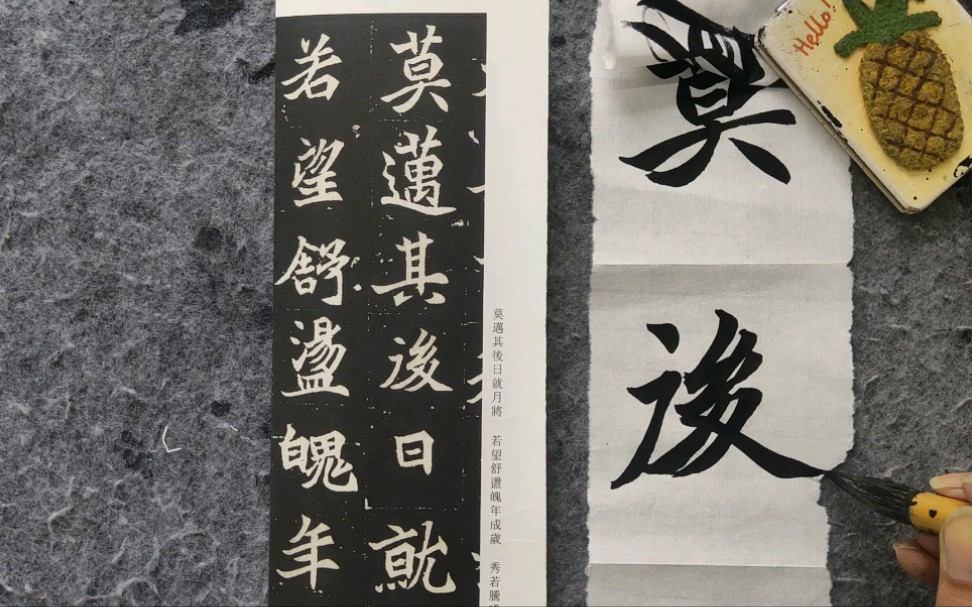 莫邁其後日就
若望舒盪魄年
莫邁其後日就月將 若望舒盪魄年成歲 秀若騰
後
Hello!